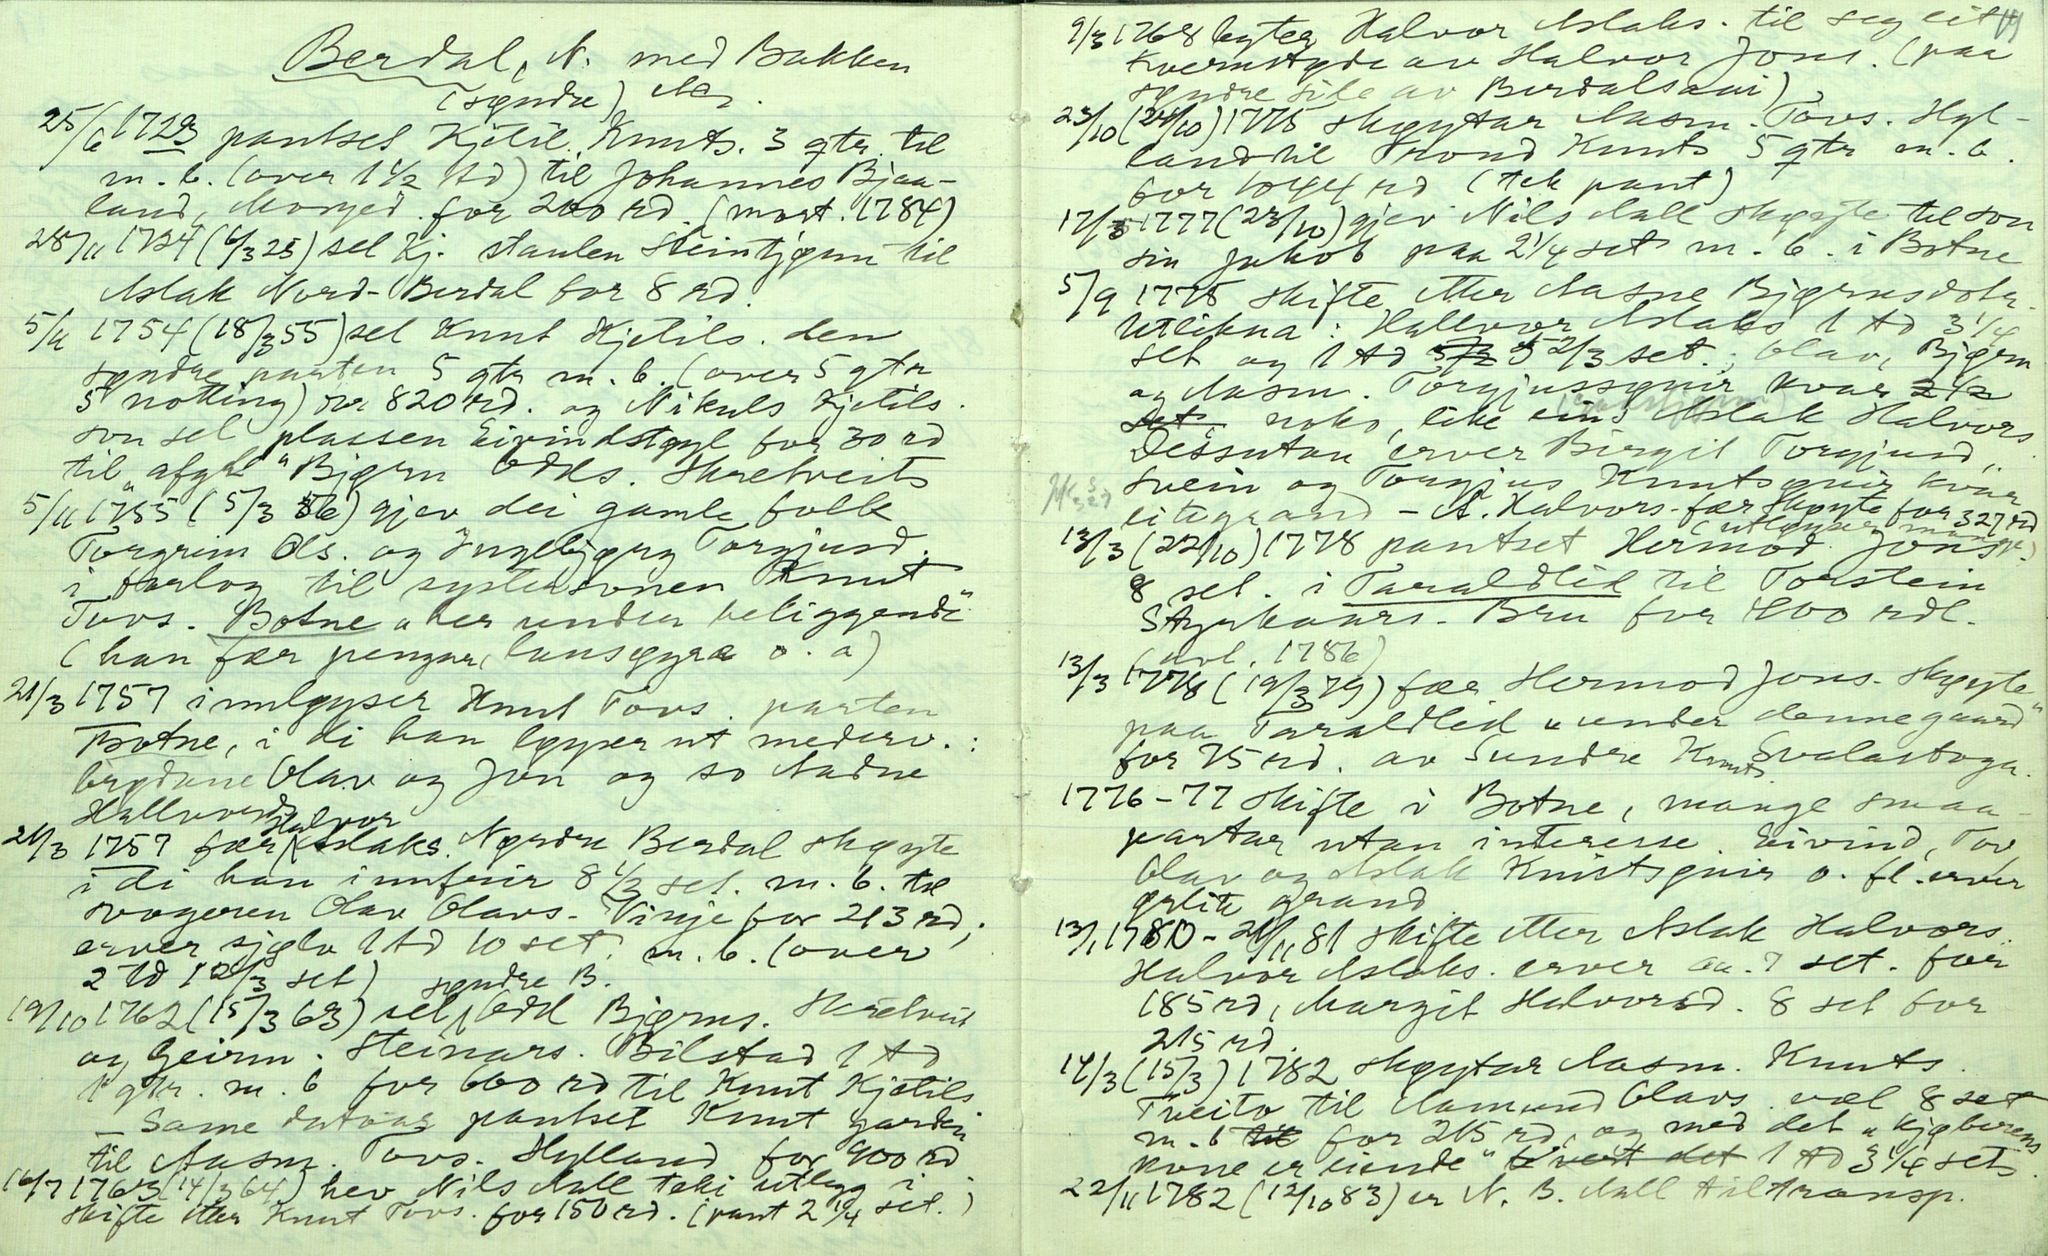 Berdal, N. med Bakken
(syndre)
25/6 1723 pantset Kjetil Knuts. 3 qtr. til
m. b. (over 1 1/2 td) til Johannes Bjaa-
land, for 200 rd. (mort. 1784)
28/11 1724 (6/3 25) sel Kj. staulen Steintjønn til
Aslak Nord-Berdal for 8 rd.
5/11 1754 (18/3 55) sel Knut Kjetils. den
syndre parten 5 qtr m. b. (over 5 qtr
5 notting) for 820 rd. og Nikuls Kjetils.
son sel plassen Eivindstøyl for 30 rd
til Bjørn Odds. Skretveit
5/11 1755 (5/3 56) gjev dei gamle folk
Torgrim Ols. og Ingebjørg Torgjusd.
i forlog til systersonen Knut
Tovs. Botne "her under beliggende"
(han fær pengar, lausøyre o. a)
21/3 1757 innløyser Knut Tovs. parten
Botne, i di han løyser ut medarv.:
brødrane Olav og Jon og so Aadne
Hallvords
21/3 1757 fær Halvor Aslaks. Nørdre Berdal skøyte
i di han innfrir 8 1/3 set. m. b. til
svogeren Olav Olavs. Vinje for 213 rd,
erver sjølv 1 td 10 set. m. b. (over
2 td 1 2/3 set) syndre B.
19/10 1762 (15/3 63) sel Odd Bjørns. Skretveit
og Geirm. Steinars. Bilstad 1 td
1 qtr. m. b for 660 rd til Knut Kjetils
— Same dato pantset Knut garden
til Aasm. Tovs. Hylland for 900 rd
16/7 1763 (14/3 64) hev Nils Aall teki utlegg i
skifte etter Knut Tovs. for 150 rd. (pant 2 1/4 set.)
9/3 1768 byter Halvor Aslaks. til seg eit
kvernstyde av Halvor Jons. (paa
syndre side av Berdalsaai)
23/10 (24/10) 1775 skøytar Aasm. Tovs. Hyl-
land til Trond Knuts 5 qtr m. b.
for 1044 rd (tek pant)
17/3 1777 (23/10) gjev Nils Aall skøyte til son
sin Jakob paa 2 1/4 set m. b. i Botne
5/9 1775 skifte etter Aasne Bjørnsdotr.
Utlikna: Hallvor Aslaks 1 td 3 1/4
set og 1 td 5 2/3 set.; Olav, Bjørn
og Aasm. Torgjussønir kvar 2 1/2
set noko, like eins Aslak Halvors.
Dessutan erver Birgit Torgjusd.,
Svein og Torgjus Knutsønir kvar
eitegrand — A. Halvors. fær skøyte for 327 rd
(utløyser mange)
13/3 (22/10) 1778 pantset Hermod Jons.
8 set. i Taraldlid til Torstein
Styrkaars. Bru for 400 rdl.
(avl. 1786)
13/3 1778 (19/3 79) fær Hermod Jons. skøyte
paa Taraldlid "under denne gaard"
for 75 rd. av Sundre Knuts Svalastoga.
1776-77 skifte i Botne, mange smaa-
partar utan interesse. Eivind, Tov,
Olav og Aslak Knutsønir o. fl. erver
grand
13/1 1780 - 21/11 81 skifte etter Aslak Halvors.
Halvor Aslaks. erver aa. 7 set. for
185 rd, Margit Halvorsd. 8 set for
215 rd.
14/3 (15/3) 1782 skøytar Aasm. Knuts.
Tveito til Aamund Olavs. vel 8 set
m. b til for 215 rd, og med det "kjøberens
kone er eiende" 1 td 3 1/4 sets
22/11 1782 (12/10 83) er N. B. Aall til transp.